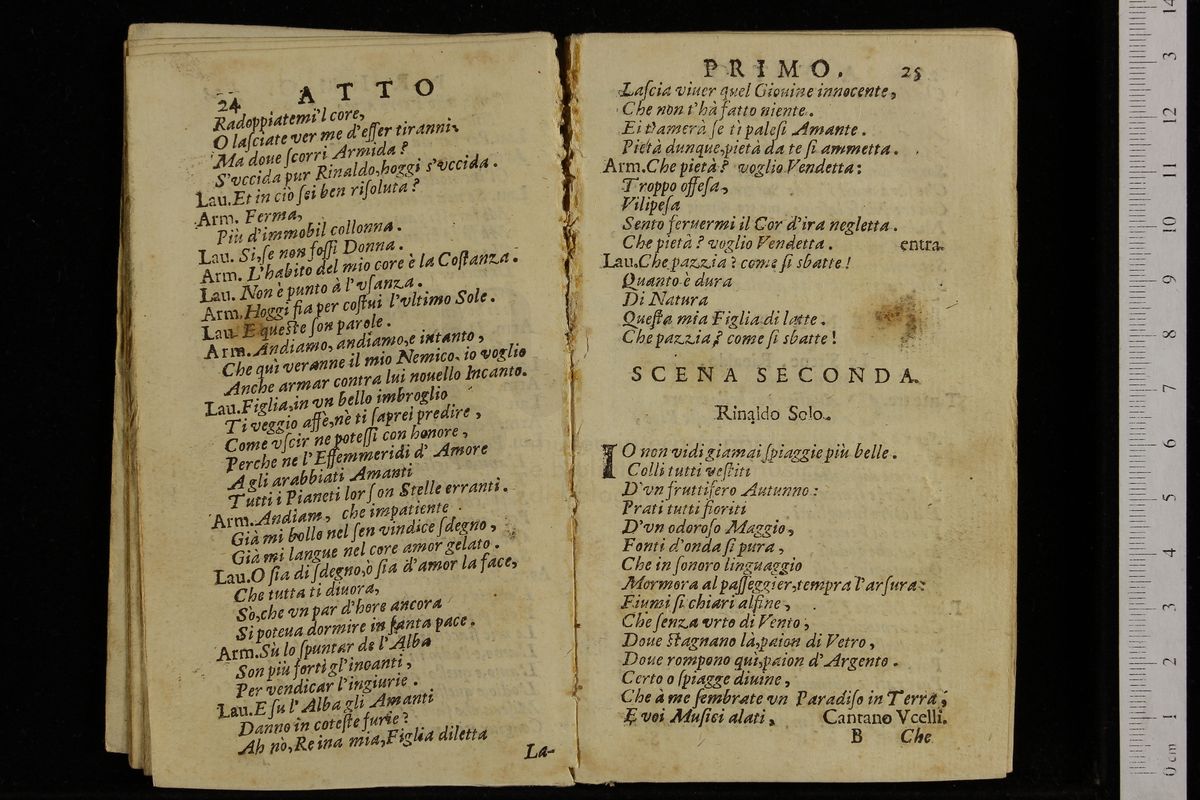 24 ATTO
Radoppiatemi'l core,
O lasciate ver me d'esser tiranni.
Ma doue scorri Armida?
S'vccida pur Rinaldo, hoggi s'vccida.
Lau. Et in ciò sei ben risoluta?
Arm. Ferma,
Più d'immobil collonna.
Lau. Si, se non fossi Donna.
Arm. L'habito del mio core è la Costanza.
Lau. Non è punto à l'vsanza.
Arm. Hoggi fia per costui l'vltimo Sole.
Lau. E queste son parole.
Arm. Andiamo, andiamo, e intanto,
Che quì veranne il mio Nemico, io voglio
Anche armar contra lui nouello Incanto.
Lau. Figlia, in vn bello imbroglio
Ti veggio affè, nè ti saprei predire,
Come vscir ne potessi con honore,
Perche ne l'Effemmeridi d'Amore
A gli arabbiati Amanti
Tutti i Pianeti lor son Stelle erranti.
Arm. Andiam, che impatiente
Già mi bolle nel sen vindice sdegno,
Già mi langue nel core amor gelato.
Lau. O sia di sdegno, ò sia d'amor la face,
Che tutta ti diuora,
Sò, che vn par d'hore ancora
Si poteua dormire in santa pace.
Arm. Sù lo spuntar de l'Alba
Son più forti gl'incanti,
Per vendicar l'ingiurie.
Lau. E su l'Alba gli Amanti
Danno in coteste furie?
Ah nò, Reina mia, Figlia diletta
La-
PRIMO. 25
Lascia viuer quel Giouine innocente,
Che non t'hà fatto niente.
Ei t'amerà se ti palesi Amante.
Pietà dunque, pietà da te si ammetta.
Arm. Che pietà? voglio Vendetta:
Troppo offesa,
Vilipesa
Sento feruermi il Cor d'ira negletta.
Che pietà? voglio Vendetta. entra.
Lau. Che pazzia? come si sbatte!
Quanto è dura
Di Natura
Questa mia Figlia di latte.
Che pazzia? come si sbatte!
SCENA SECONDA.
Rinaldo Solo.
IO non vidi giamai spiaggie più belle.
Colli tutti vestiti
D'vn fruttifero Autunno:
Prati tutti fioriti
D'vn odoroso Maggio,
Fonti d'onda sì pura,
Che in sonoro linguaggio
Mormora al passeggier, tempra l'arsura:
Fiumi sì chiari alfine,
Che senza vrto di Vento,
Doue stagnano là, paion di Vetro,
Doue rompono quì, paion d'Argento.
Certo o spiagge diuine,
Che à me sembrate vn Paradiso in Terra;
E voi Musici alati, Cantano Vcelli.
B Che